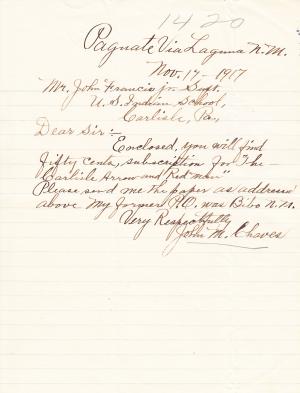 1420
Paguate Via Laguna N.M.
Nov. 17 - 1917
Mr. John Francis jr Supt.
U. S. Indian School,
Carlisle, Pa,
Dear Sir:-
Enclosed, you will find
fifty cents, subscription for "The
Carlisle Arrow and Red man"
Please, send me the paper as addressed
above My former P.O. was Bibo N.M.
Very Respectfully
John M. Chaves